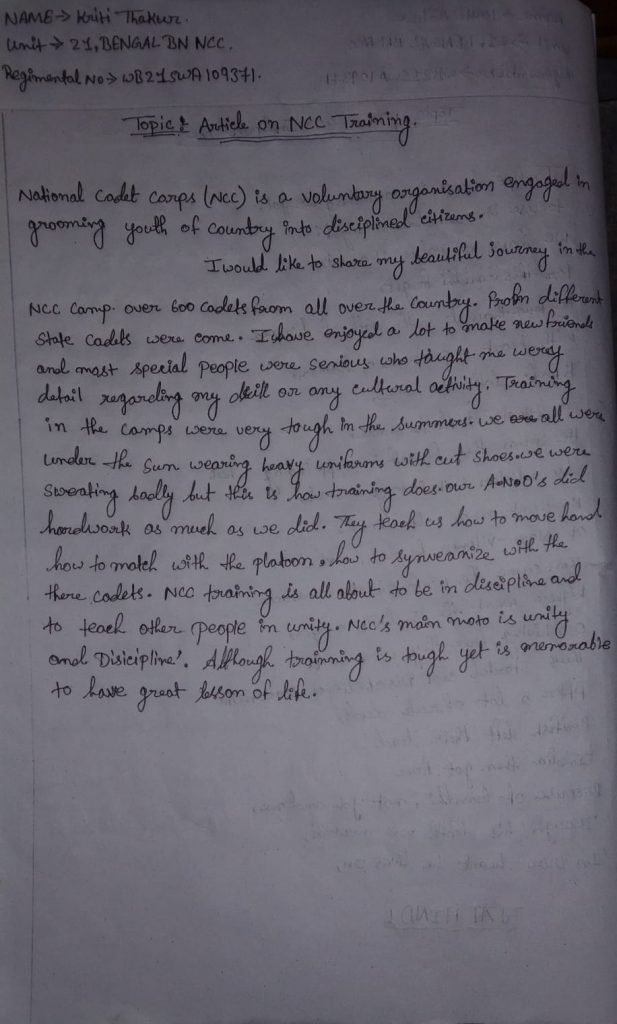 NAME → Kriti Thakur.
Unit → 21, BENGAL BN NCC.
Regimental No → WB21SWA109371.
Topic : Article on NCC Training.
National Cadet Carps (NCC) is a voluntary organisation engaged in
grooming youth of country into disciplined citizens.
I would like to share my beautiful journey in the
NCC Camp. over 600 cadets from all over the country. From different
State cadets were come. I have enjoyed a lot to make new friends
and most special people were senious who taught me wery
detail regareling my drill or any cultural activity. Training
in the camps were very tough in the summers. we are all were
under the sun wearing heavy uniforms with cut shoes. we were
sweating badly but this is how training does. our A.N.O's did
hardwork as much as we did. They teach us how to move hand
how to match with the platoon, how to synveanize with the
there cadets. NCC training is all about to be in discipline and
to teach other people in unity. NCC's main moto is unity
and Disicipline'. Although trainning is tough yet is memorable
to have great lesson of life.